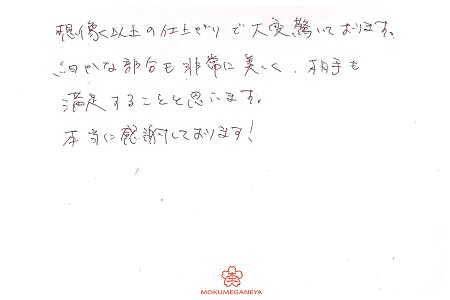 想像く以上の仕上がりで大変驚いております。
細やかな部分も非常に美しく、相手も
満足することと思います。
本当に感謝しております！
MOKUMEGANEYA